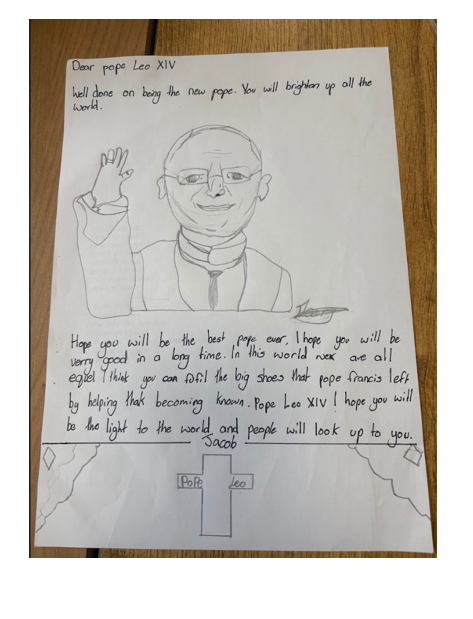 Dear pope Leo XIV
Well done on being the new pope. You will brighten up all the
world.
Hope you will be the best pope ever. I hope you will be
verry good in a long time. In this world are all
eqel I think you can fofil the big shoes that pope francis left
by helping that becoming known. Pope Leo XIV I hope you will
be the light to the world and people will look up to you.
Jacob
PoPe Leo